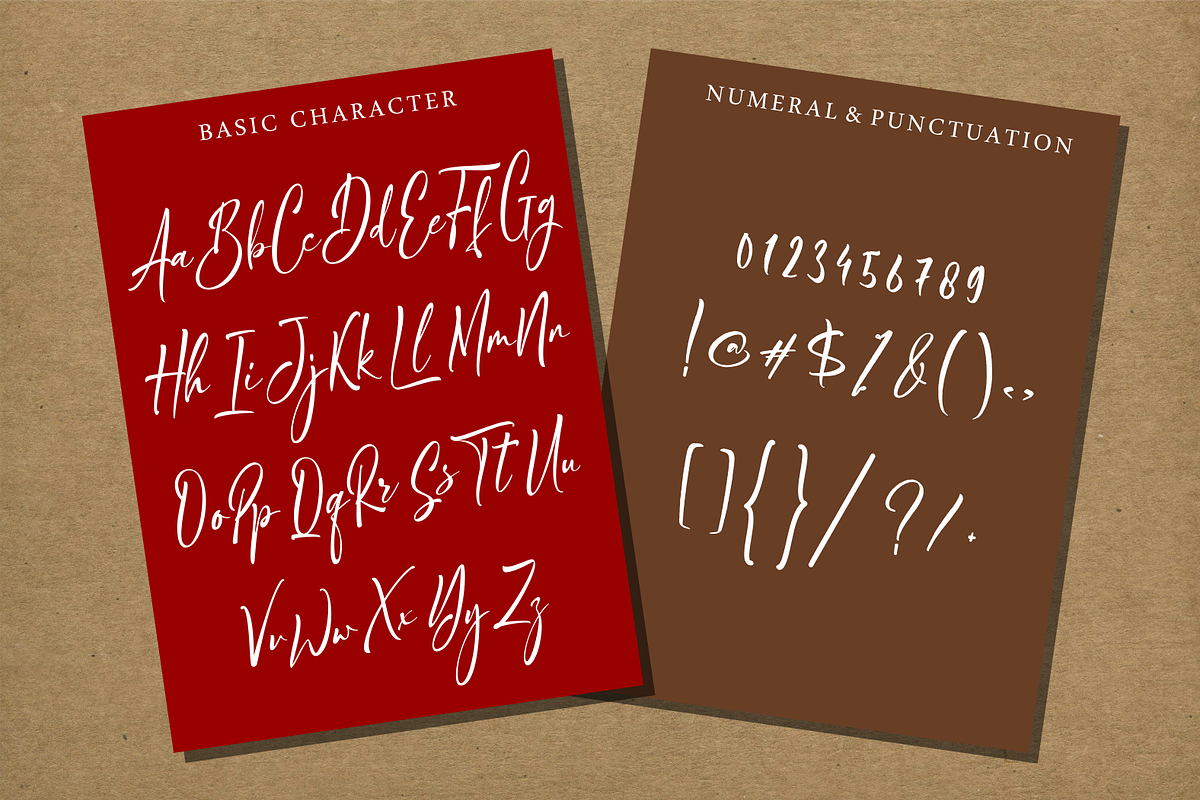 BASIC CHARACTER
Aa Bb Cc Dd Ee Ff Gg
Hh Ii Jj Kk Ll Mm Nn
Oo Pp Qq Rr Ss Tt Uu
Vv Ww Xx Yy Zz
NUMERAL & PUNCTUATION
0123456789
!@#$%&()<>
[]{}/?/.